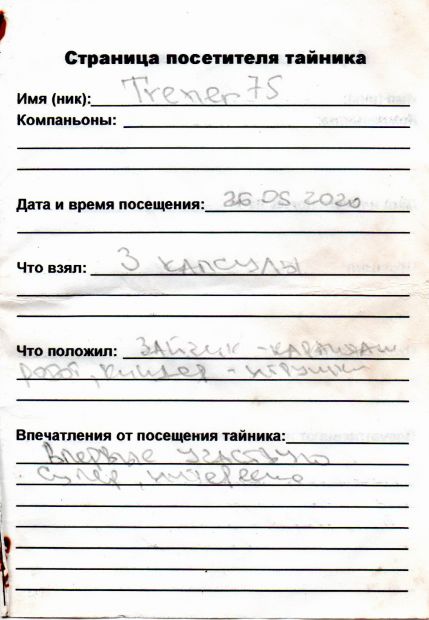 Страница посетителя тайника
Имя (ник): Trener75
Компаньоны:
Дата и время посещения: 26 05 2020
Что взял: 3 капсулы
Что положил: зайчик - карандаш
робот, киндер - игрушки
Впечатления от посещения тайника:
Впервые участвую
супер, интересно